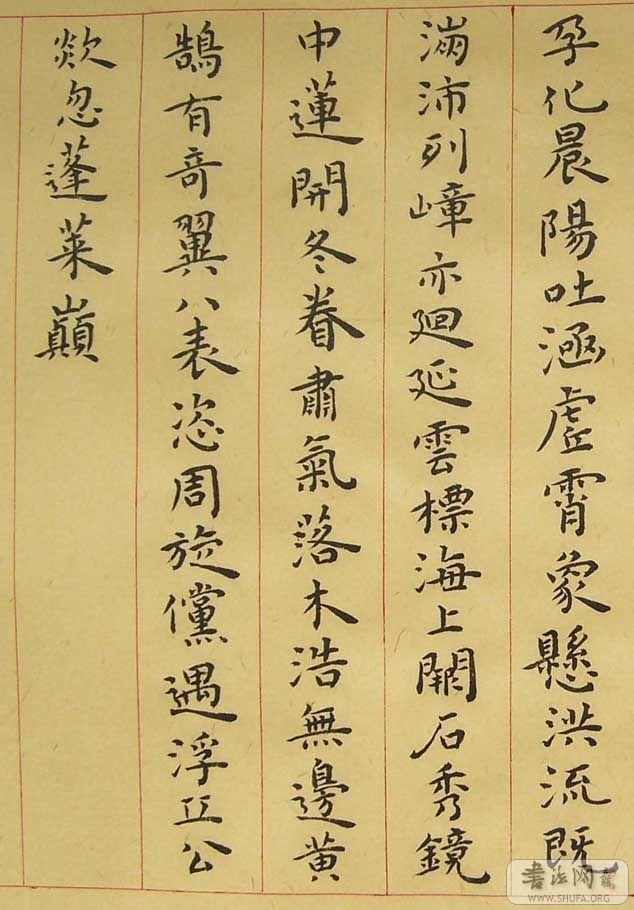 孕化晨陽吐涵虛霄象懸洪流既
滿沛列嶂亦迴延雲標海上闢石秀鏡
中蓮開冬眷肅氣落木浩無邊黃
鵠有奇翼八表恣周旋儻遇浮丘公
欻忽蓬萊巔
書法网
WWW.SHUFA.ORG